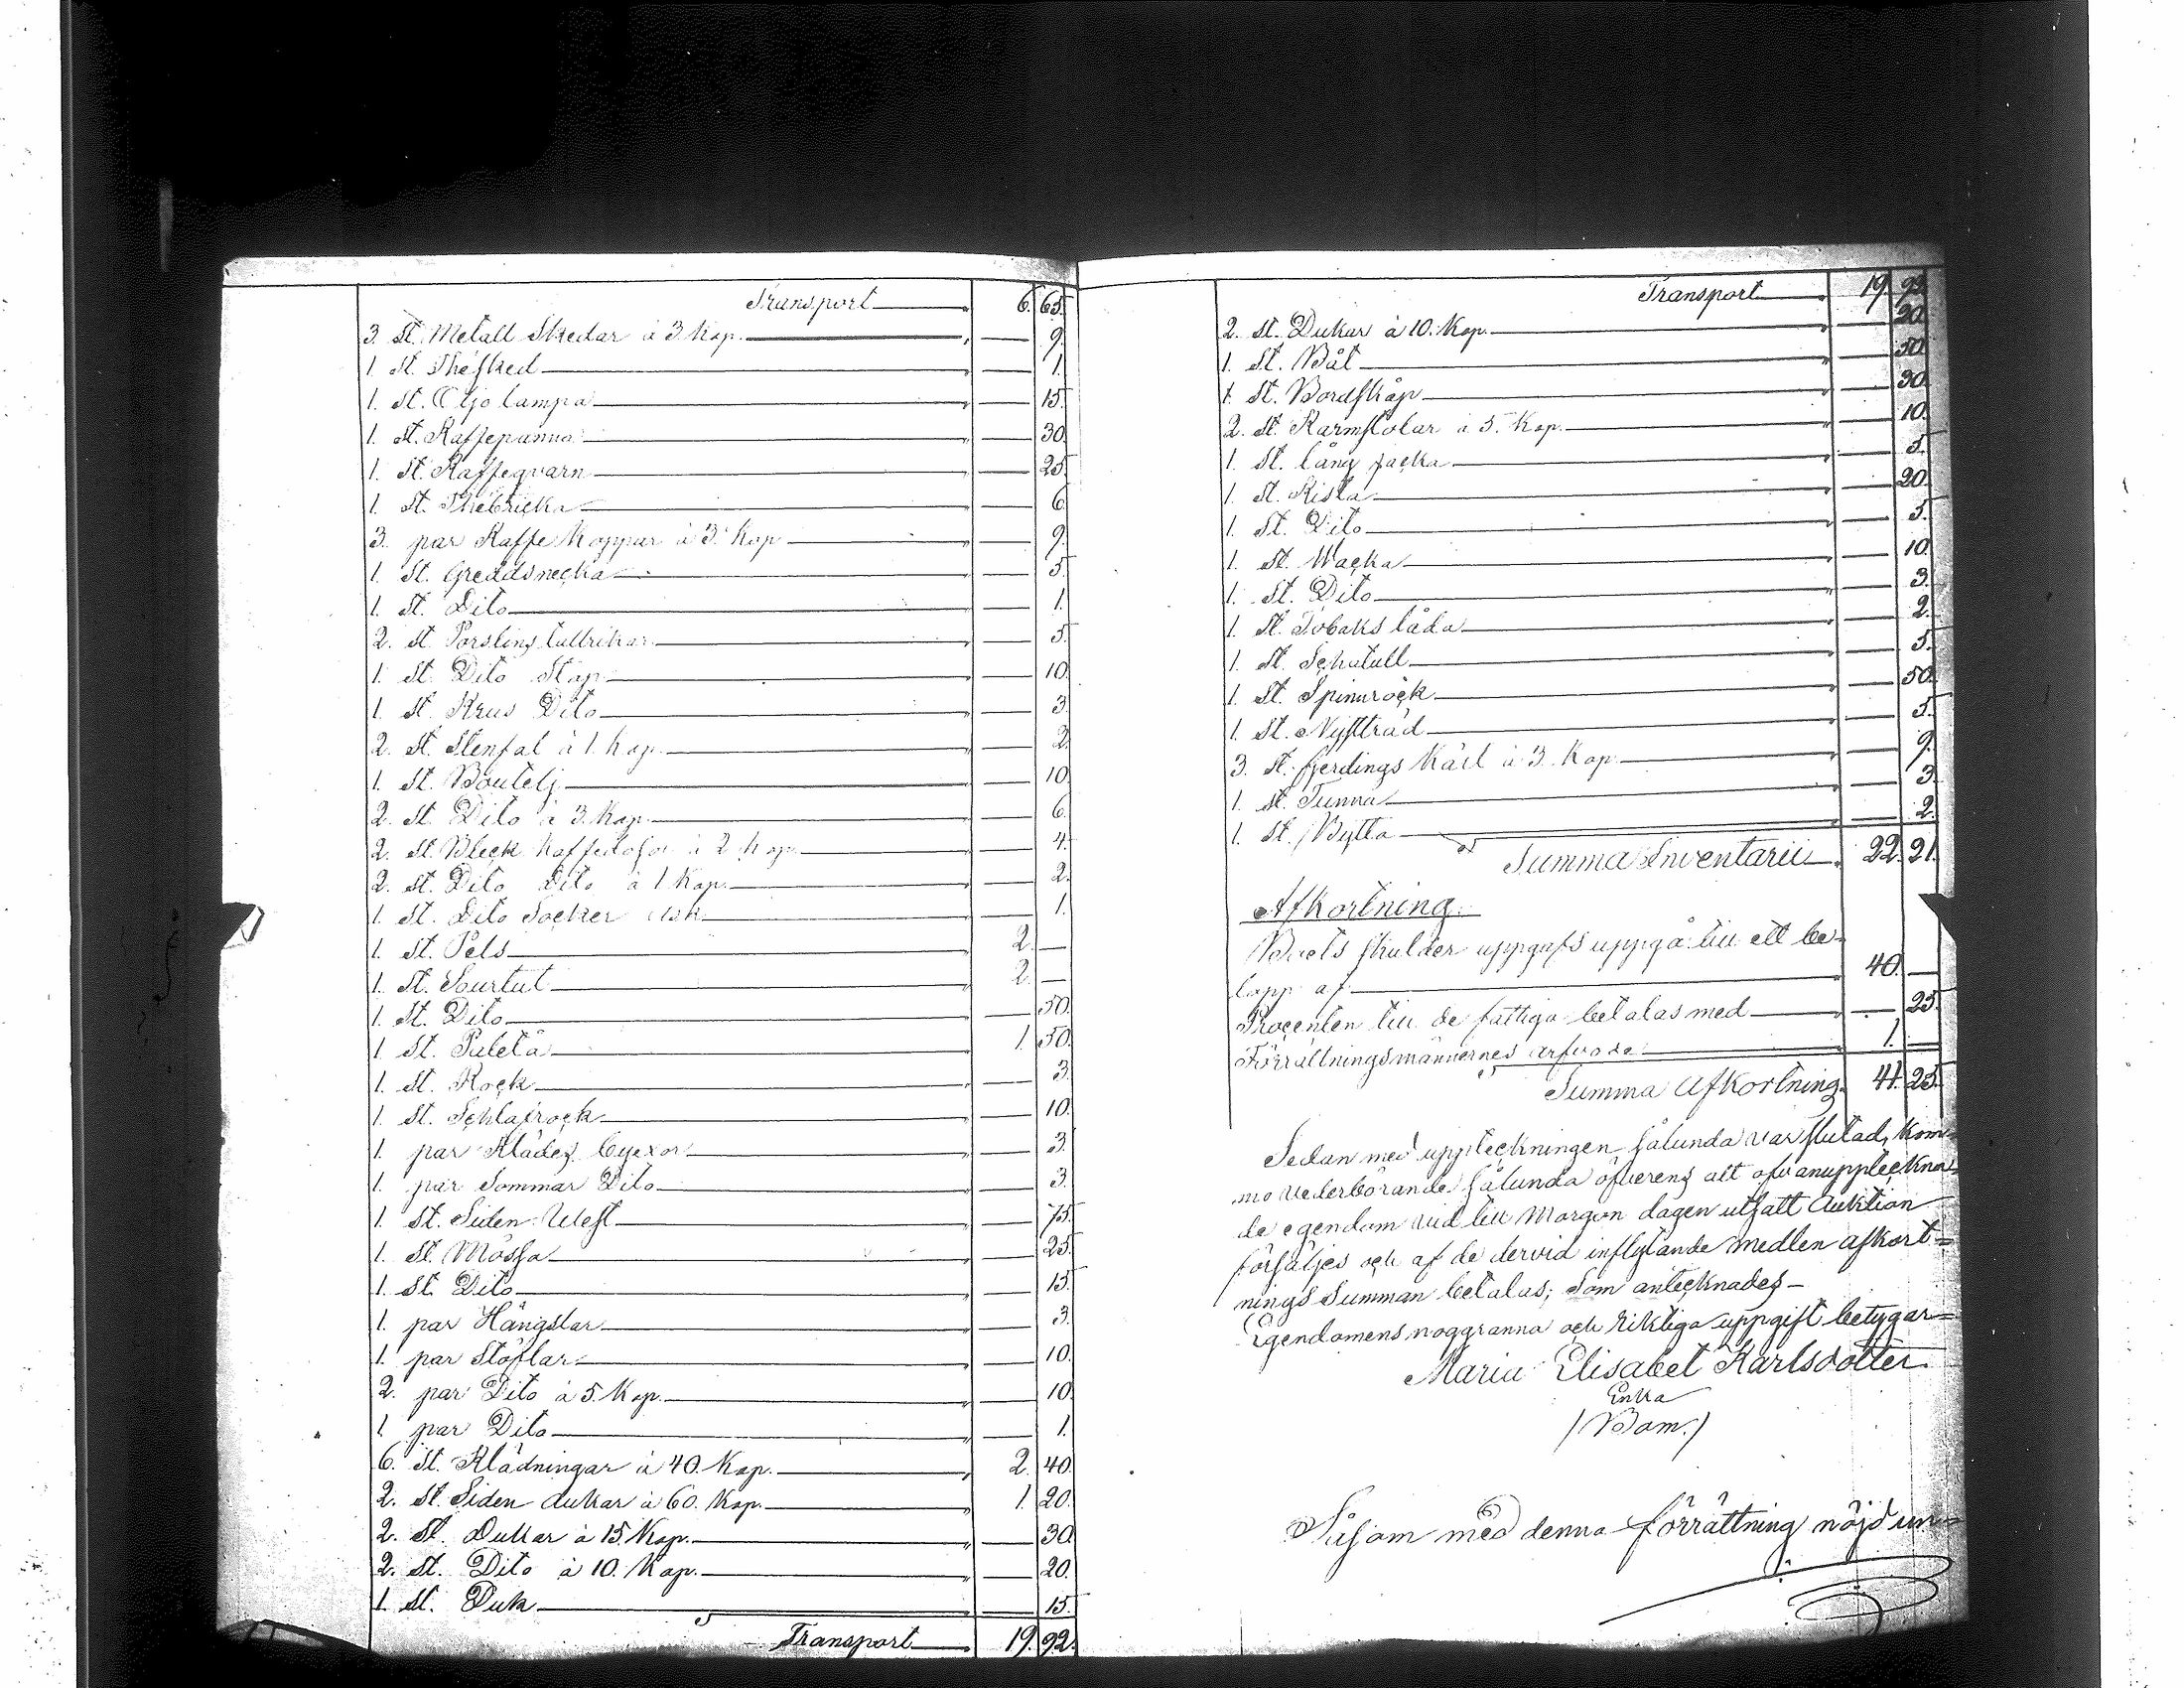 Transport 6. 65.
3. St. Metall Skedar à 3 Kop. 9.
1. St. Theſked 1.
1. St. Oljo lampa 15.
1. St. Kaffepanna 30.
1. St. Kaffeqvarn 25.
1. St. Thebricka 6.
3. par Kaffe Koppar à 3. Kop 9.
1. St. Greddsnecka 5.
1. St. Dito 1.
2. St. Porslins tallrikar 5.
1. St. Dito Stop 10.
1. St. Krus Dito 3.
2. St. Stenfat à 1. Kop. 2.
1. St. Boutelj 10.
2. St. Dito à 3. Kop. 6.
2. St. Bleck Kaffedosor à 2 Kop. 4.
2. St. Dito Dito à 1 Kop. 2.
1. St. Dito Socker Ask 1.
1. St. Pels 2.
1. St. Sourtut 2.
1. St. Dito 50.
1. St. Paletå 1. 50.
1. St. Rock 3.
1. St. Schlafrock 10.
1. par Klädes byxor 3.
1. par Sommar Dito 3.
1. St. Siden West 75.
1. St. Mössa 25.
1. St. Dito 15.
1. par Hängslar 3.
1. par Stöflar 10.
2. par Dito à 5. Kop. 10.
1. par Dito 1.
6. St. Klädningar à 40. Kop. 2. 40.
2. St. Siden dukar à 60. Kop. 1. 20.
2. St. Dukar à 15 Kop. 30.
2. St. Dito à 10. Kop. 20.
1. St. Duk 15.
Transport 19. 92.
Transport 19. 92.
2. St. Dukar à 10. Kop. 20.
1. St. Båt 50.
1. St. Bordſkåp 30.
2. St. Karmstolar à 5. Kop. 10.
1. St. lång packa 5.
1. St. Kista 20.
1. St. Dito 5.
1. St. Wacka 10.
1. St. Dito 3.
1. St. Tobaks låda 2.
1. St. Schatull 5.
1. St. Spinnrock 50.
1. St. Nystträd 5.
3. St. fjerdings Kärl à 3. Kop. 9.
1. St. Tunna 3.
1. St. Bytta 2.
Summa Inventarii 22. 21.
Afkortning.
Boets ſkulder uppgafs uppgå till ett be-
lopp af 40.
Procenten till de fattiga betalas med 25.
Förrättningsmännernes arfvode 1.
Summa Afkortning 41. 25.
Sedan med uppteckningen ſålunda var ſlutad, kom-
mo vederbörande ſålunda öfverens att ofvanuppteckna-
de egendom vid till Morgon dagen utſatt Auktion
förſäljes och af de dervid inflytande medlen afkort=
nings Summan betalas; Som antecknades –
Egendomens noggranna och riktiga uppgift betygar=
Maria Elisabet Karlsdotter
Enka
(Bom.)
Såſom med denna förrättning nöjd un=